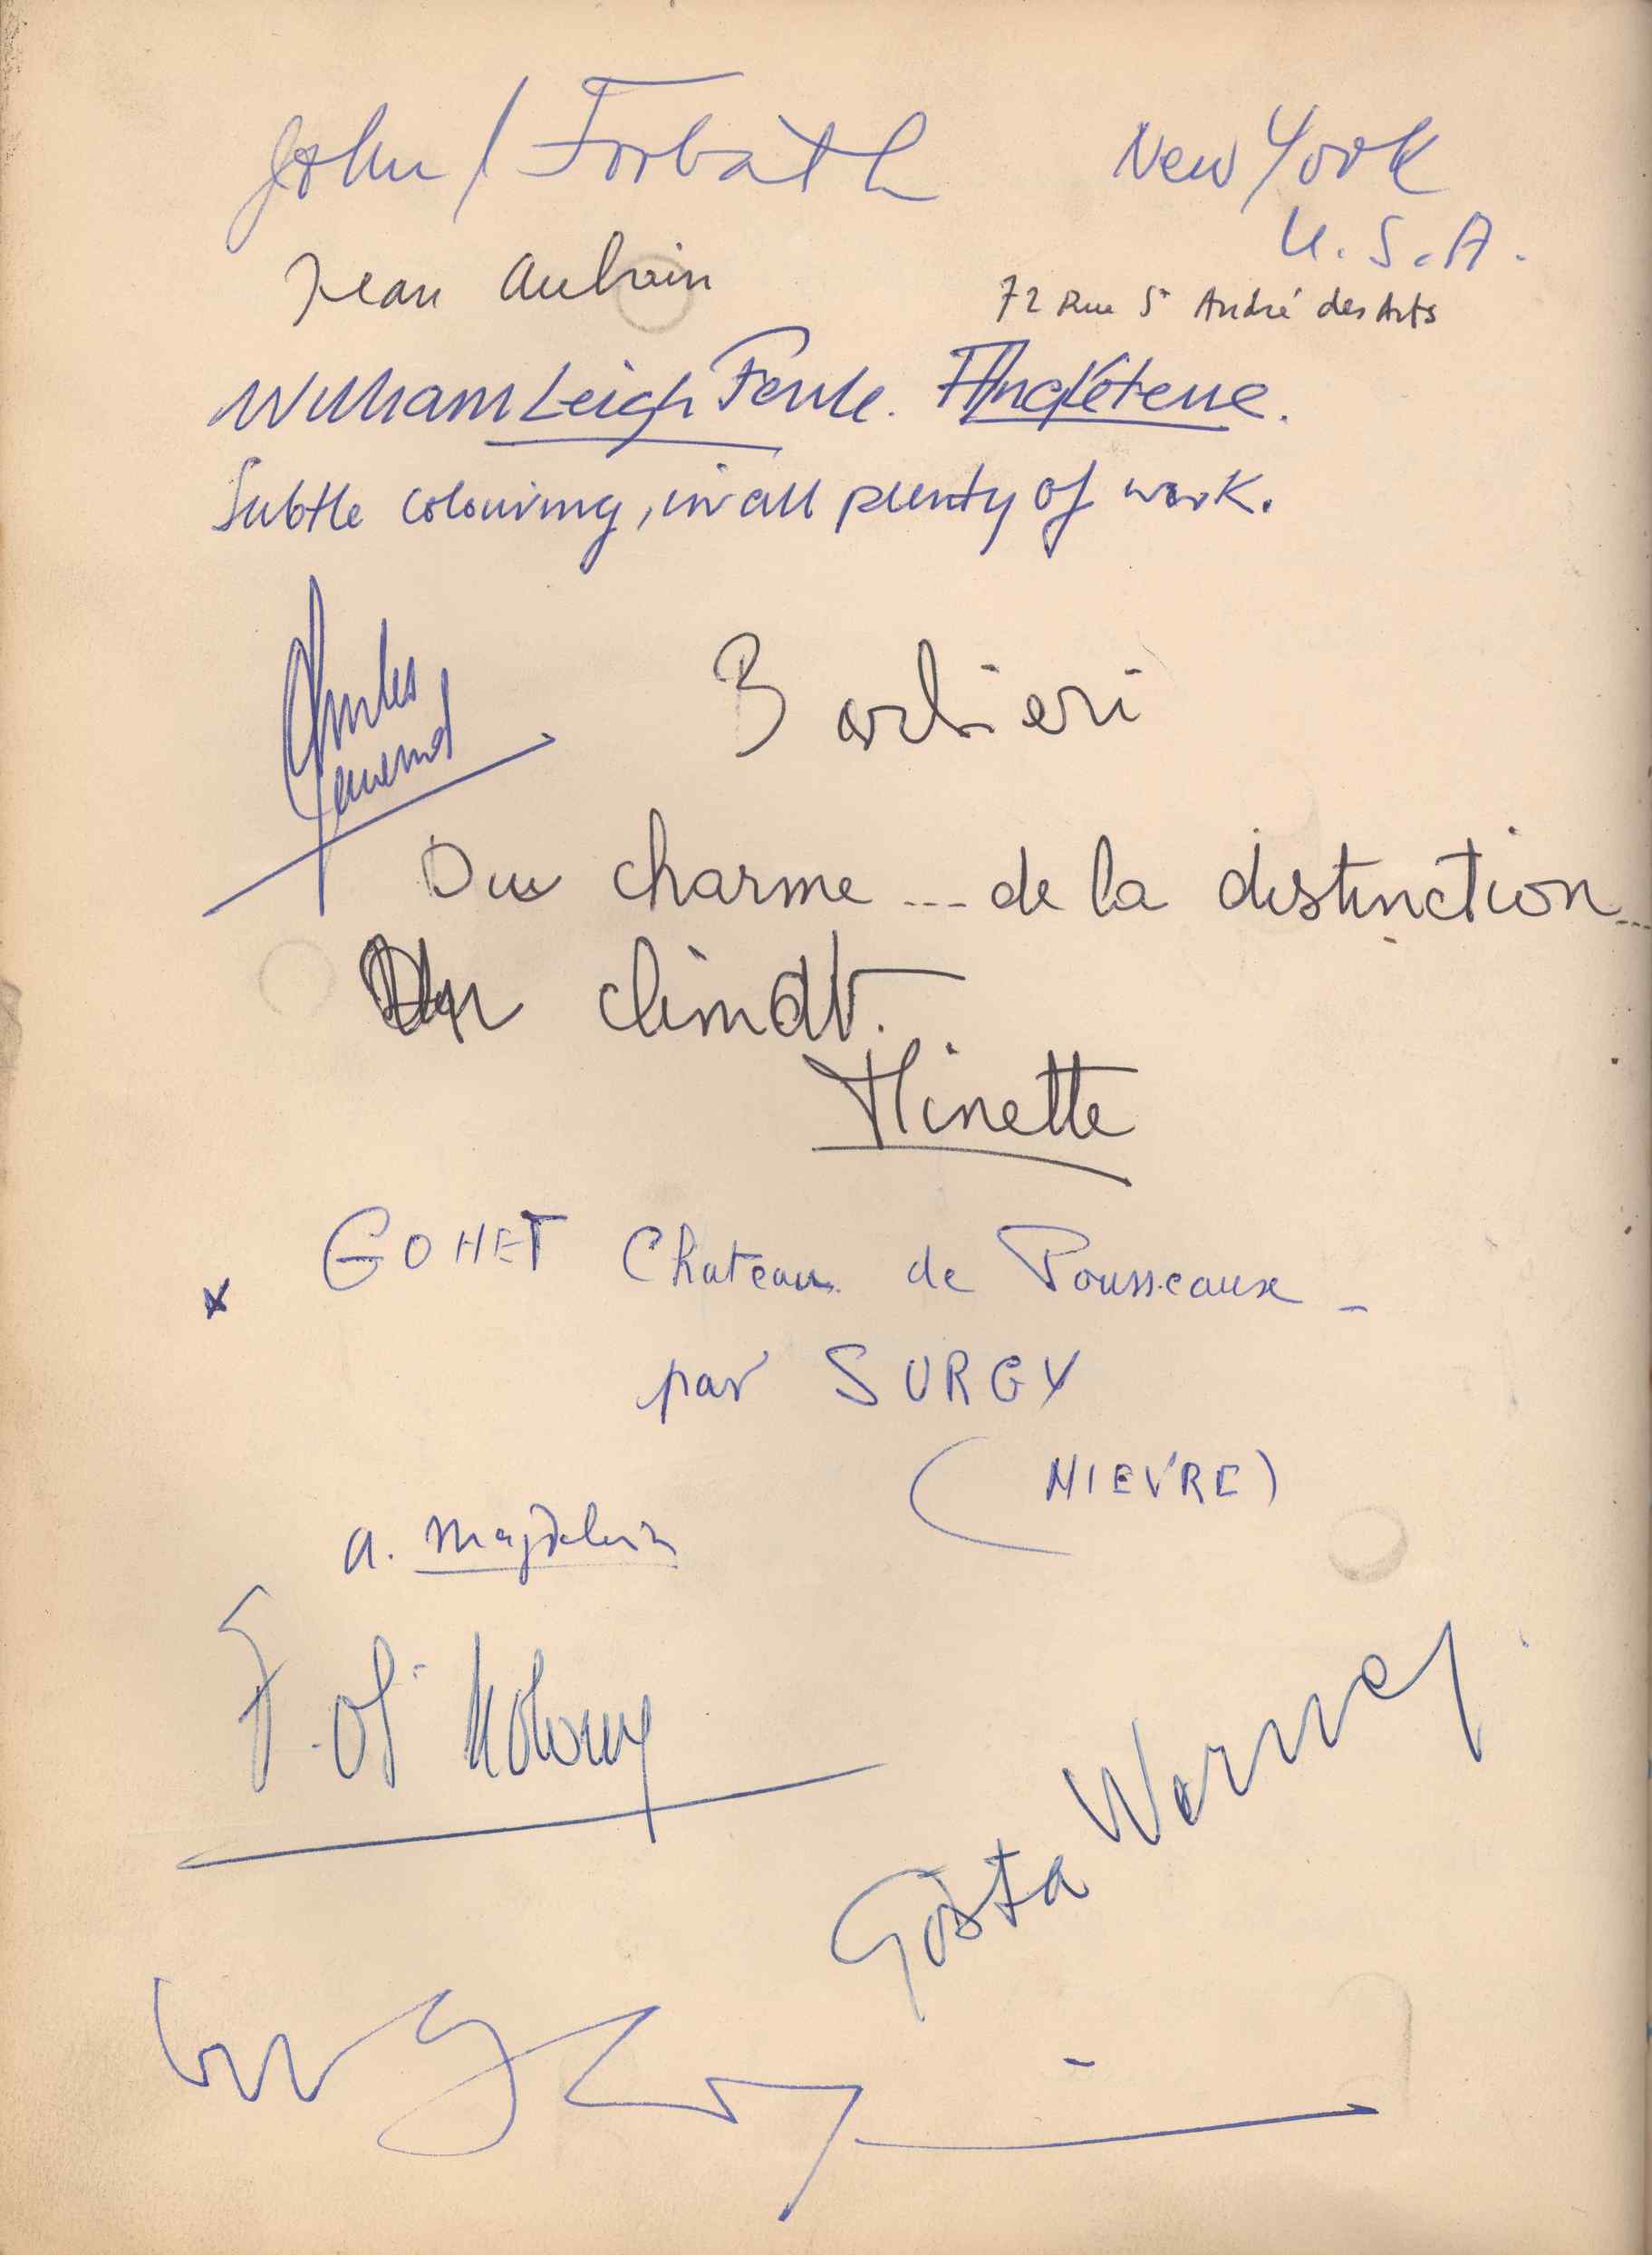 John / Forbath New York
U.S.A.
Jean Aubrin 72 Rue St André des Arts
William Leigh Angleterre.
Subtle colouring, in all plenty of work.
Charles
Barbieri
Du charme ... de la distinction ...
Un climat.
Minette
x GOHET Chateau de Pousseaux -
par SURGY
(NIEVRE)
a.
F.
Gösta Werner